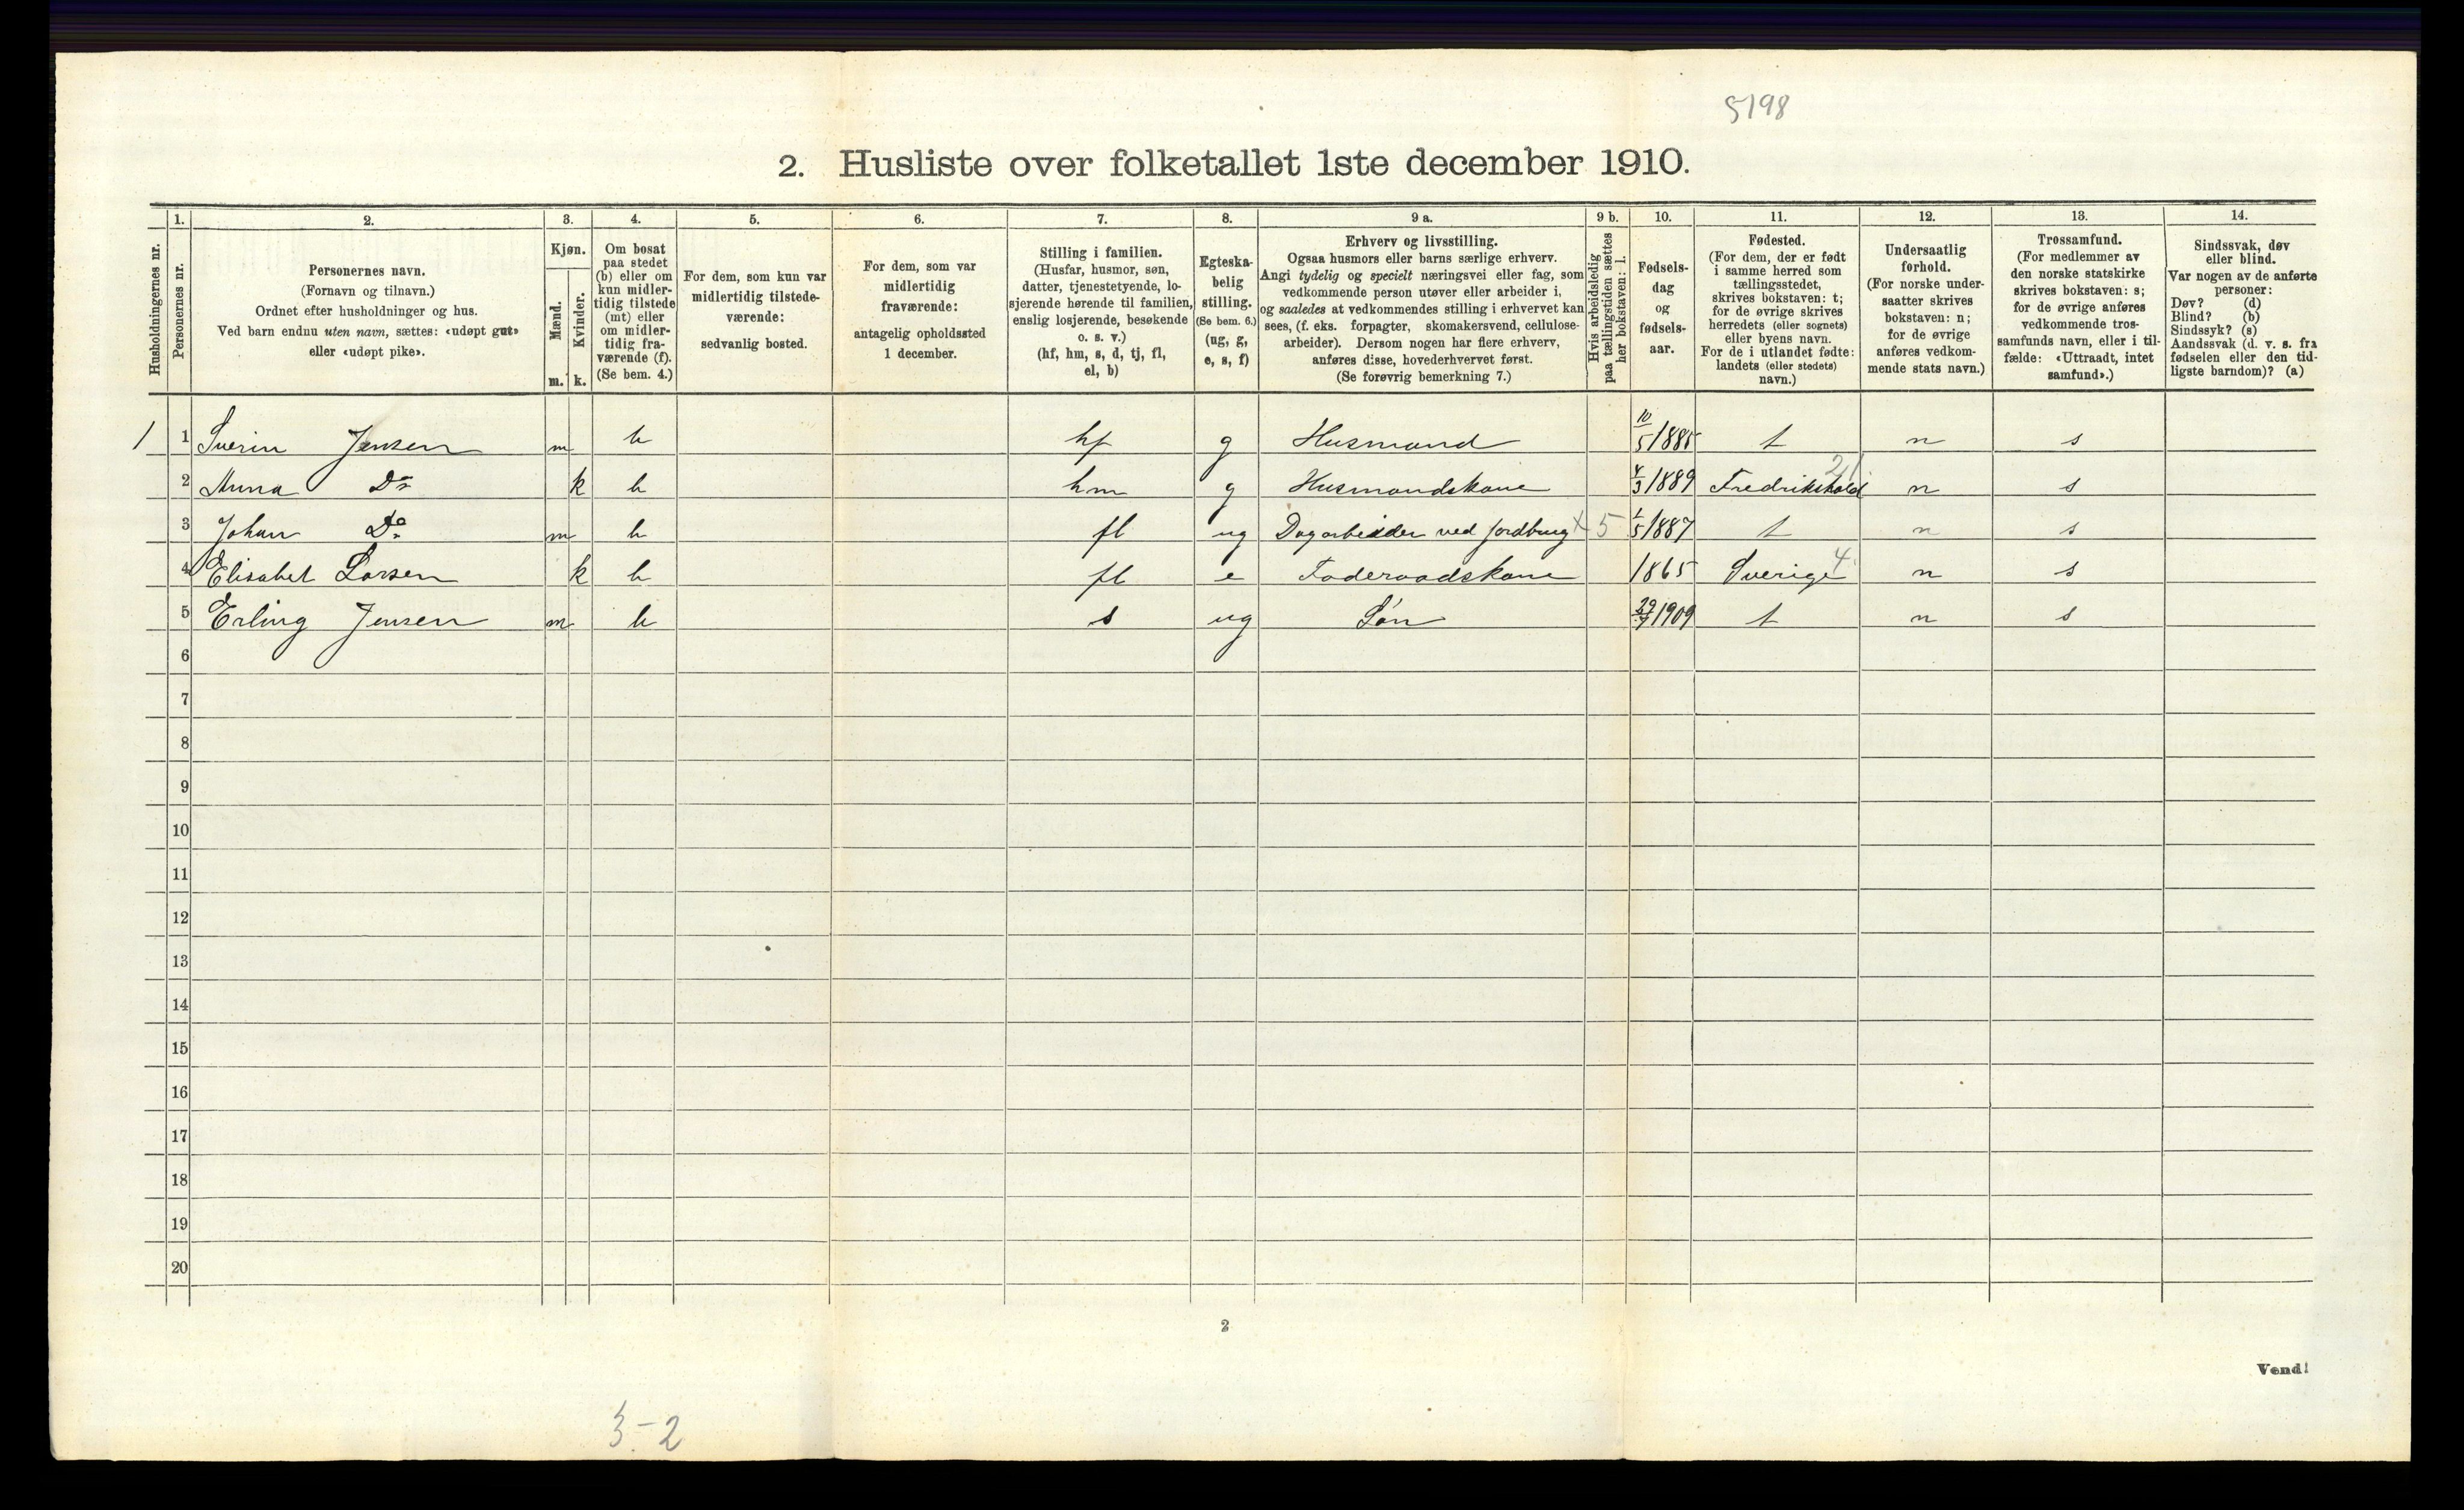 5198
2. Husliste over folketallet 1ste december 1910.
Husholdningernes nr.
1.
Personernes nr.
2.
Personernes navn.
(Fornavn og tilnavn.)
Ordnet efter husholdninger og hus.
Ved barn endnu uten navn, sættes: «udøpt gut»
eller «udøpt pike».
3.
Kjøn.
Mænd.
Kvinder.
m. k.
4.
Om bosat
paa stedet
(b) eller om
kun midler-
tidig tilstede
(mt) eller
om midler-
tidig fra-
værende (f).
(Se bem. 4.)
5.
For dem, som kun var
midlertidig tilstede-
værende:
sedvanlig bosted.
6.
For dem, som var
midlertidig
fraværende:
antagelig opholdssted
1 december.
7.
Stilling i familien.
(Husfar, husmor, søn,
datter, tjenestetyende, lo-
sjerende hørende til familien,
enslig losjerende, besøkende
o. s. v.)
(hf, hm, s, d, tj, fl,
el, b)
8.
Egteska-
belig
stilling.
(Se bem. 6.)
(ug, g,
e, s, f)
9 a.
Erhverv og livsstilling.
Ogsaa husmors eller barns særlige erhverv.
Angi tydelig og specielt næringsvei eller fag, som
vedkommende person utøver eller arbeider i,
og saaledes at vedkommendes stilling i erhvervet kan
sees, (f. eks. forpagter, skomakersvend, cellulose-
arbeider). Dersom nogen har flere erhverv,
anføres disse, hovederhvervet først.
(Se forøvrig bemerkning 7.)
9 b.
Hvis arbeidsledig
paa tællingstiden sættes
her bokstaven: l.
10.
Fødsels-
dag
og
fødsels-
aar.
11.
Fødested.
(For dem, der er født
i samme herred som
tællingsstedet,
skrives bokstaven: t;
for de øvrige skrives
herredets (eller sognets)
eller byens navn.
For de i utlandet fødte:
landets (eller stedets)
navn.)
12.
Undersaatlig
forhold.
(For norske under-
saatter skrives
bokstaven: n;
for de øvrige
anføres vedkom-
mende stats navn.)
13.
Trossamfund.
(For medlemmer av
den norske statskirke
skrives bokstaven: s;
for de øvrige anføres
vedkommende tros-
samfunds navn, eller i til-
fælde: «Uttraadt, intet
samfund».)
14.
Sindssvak, døv
eller blind.
Var nogen av de anførte
personer:
Døv? (d)
Blind? (b)
Sindssyk? (s)
Aandssvak (d. v. s. fra
fødselen eller den tid-
ligste barndom)? (a)
1 1 Sverin Jensen m b hf g Husmand 10/5 1885 t n s
2 Anna Do k b hm g Husmandskone 4/3 1889 Fredrikshald 21 n s
3 Johan Do m b fl ug Dagarbeider ved jordbrug x 5 1/5 1887 t n s
4 Elisabet Larsen k b fl e Foderaadskone 1865 Sverige 4 n s
5 Erling Jensen m b s ug Søn 1909 t n s
6
7
8
9
10
11
12
13
14
15
16
17
18
19
20
2
Vend!
3-2